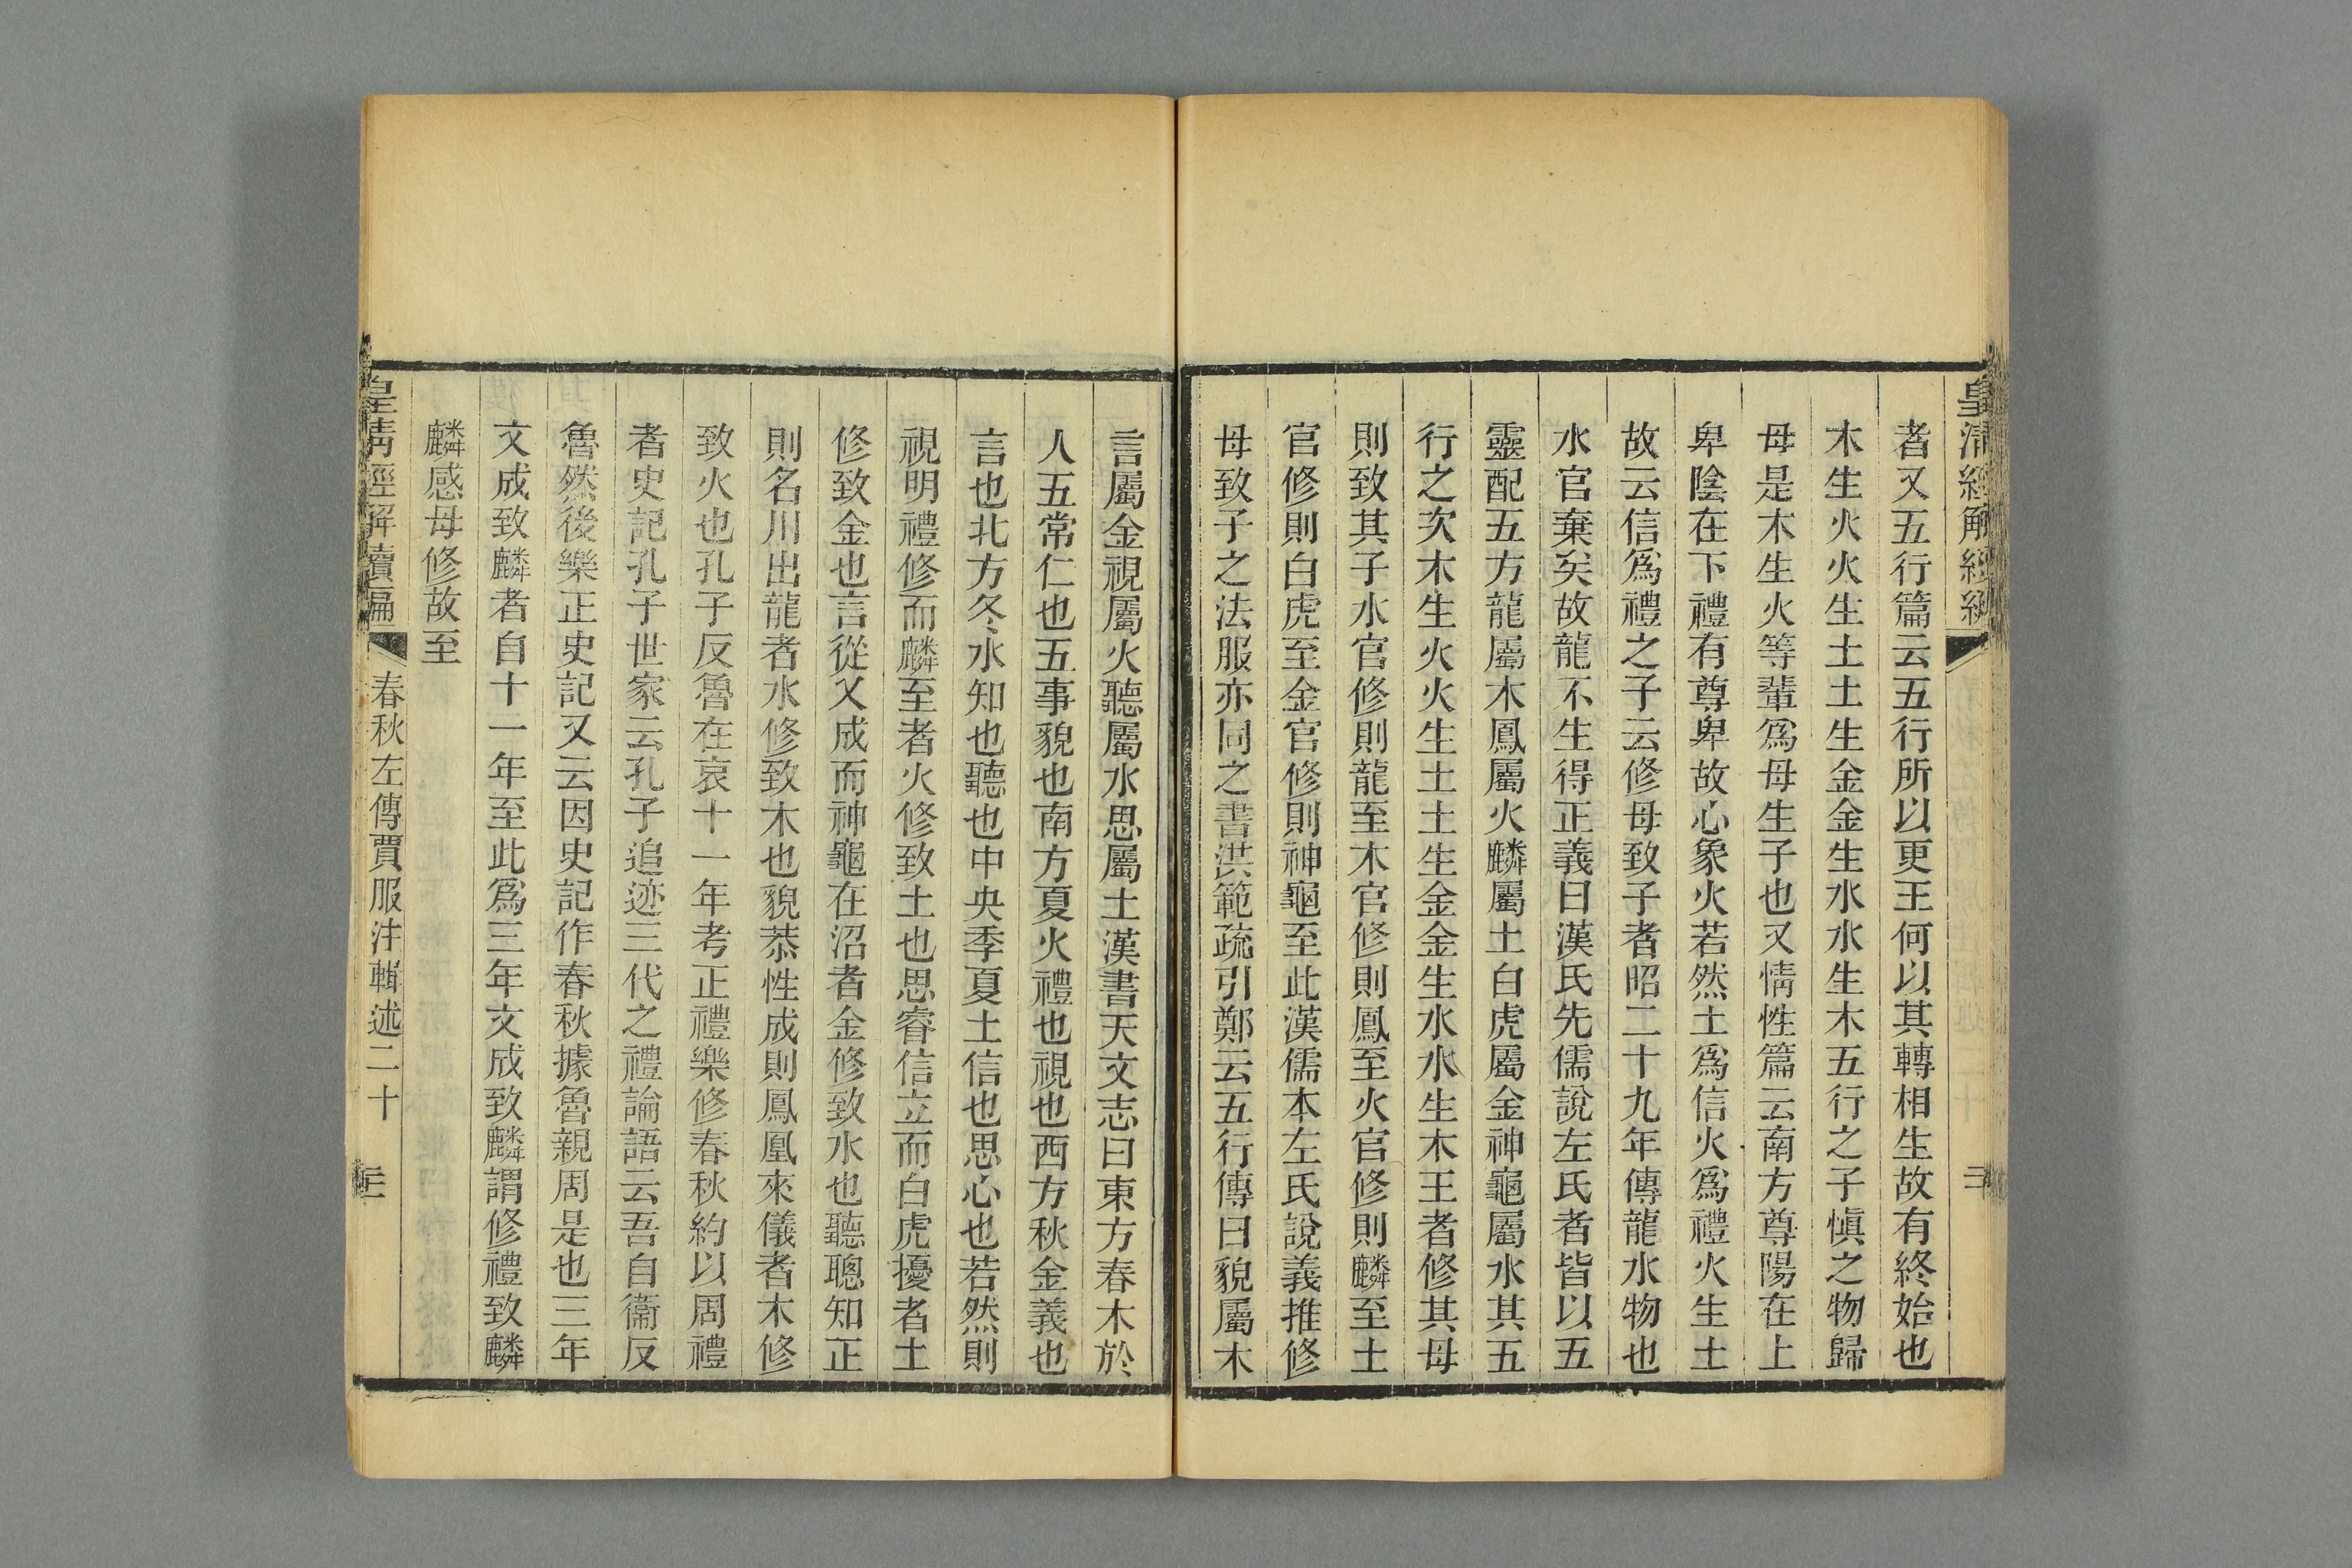 皇清經解續編
者又五行篇云五行所以更王何以其轉相生故有終始也
木生火火生土土生金金生水水生木五行之子愼之物歸
母是木生火等輩爲母生子也又情性篇云南方尊陽在上
卑陰在下禮有尊卑故心象火若然土爲信火爲禮火生土
故云信爲禮之子云修母致子者昭二十九年傳龍水物也
水官棄矣故龍不生得正義曰漢氏先儒說左氏者皆以五
靈配五方龍屬木鳳屬火麟屬土白虎屬金神龜屬水其五
行之次木生火火生土土生金金生水水生木王者修其母
則致其子水官修則龍至木官修則鳳至火官修則麟至土
官修則白虎至金官修則神龜至此漢儒本左氏說義推修
母致子之法服亦同之書洪範疏引鄭云五行傳曰貌屬木
言屬金視屬火聽屬水思屬土漢書天文志曰東方春木於
人五常仁也五事貌也南方夏火禮也視也西方秋金義也
言也北方冬水知也聽也中央季夏土信也思心也若然則
視明禮修而麟至者火修致土也思睿信立而白虎擾者土
修致金也言從乂成而神龜在沼者金修致水也聽聰知正
則名川出龍者水修致木也貌恭性成則鳳凰來儀者木修
致火也孔子反魯在哀十一年考正禮樂修春秋約以周禮
者史記孔子世家云孔子追迹三代之禮論語云吾自衞反
魯然後樂正史記又云因史記作春秋據魯親周是也三年
文成致麟者自十一年至此爲三年文成致麟謂修禮致麟
麟感母修故至
皇清經解續編 春秋左傳賈服注輯述二十